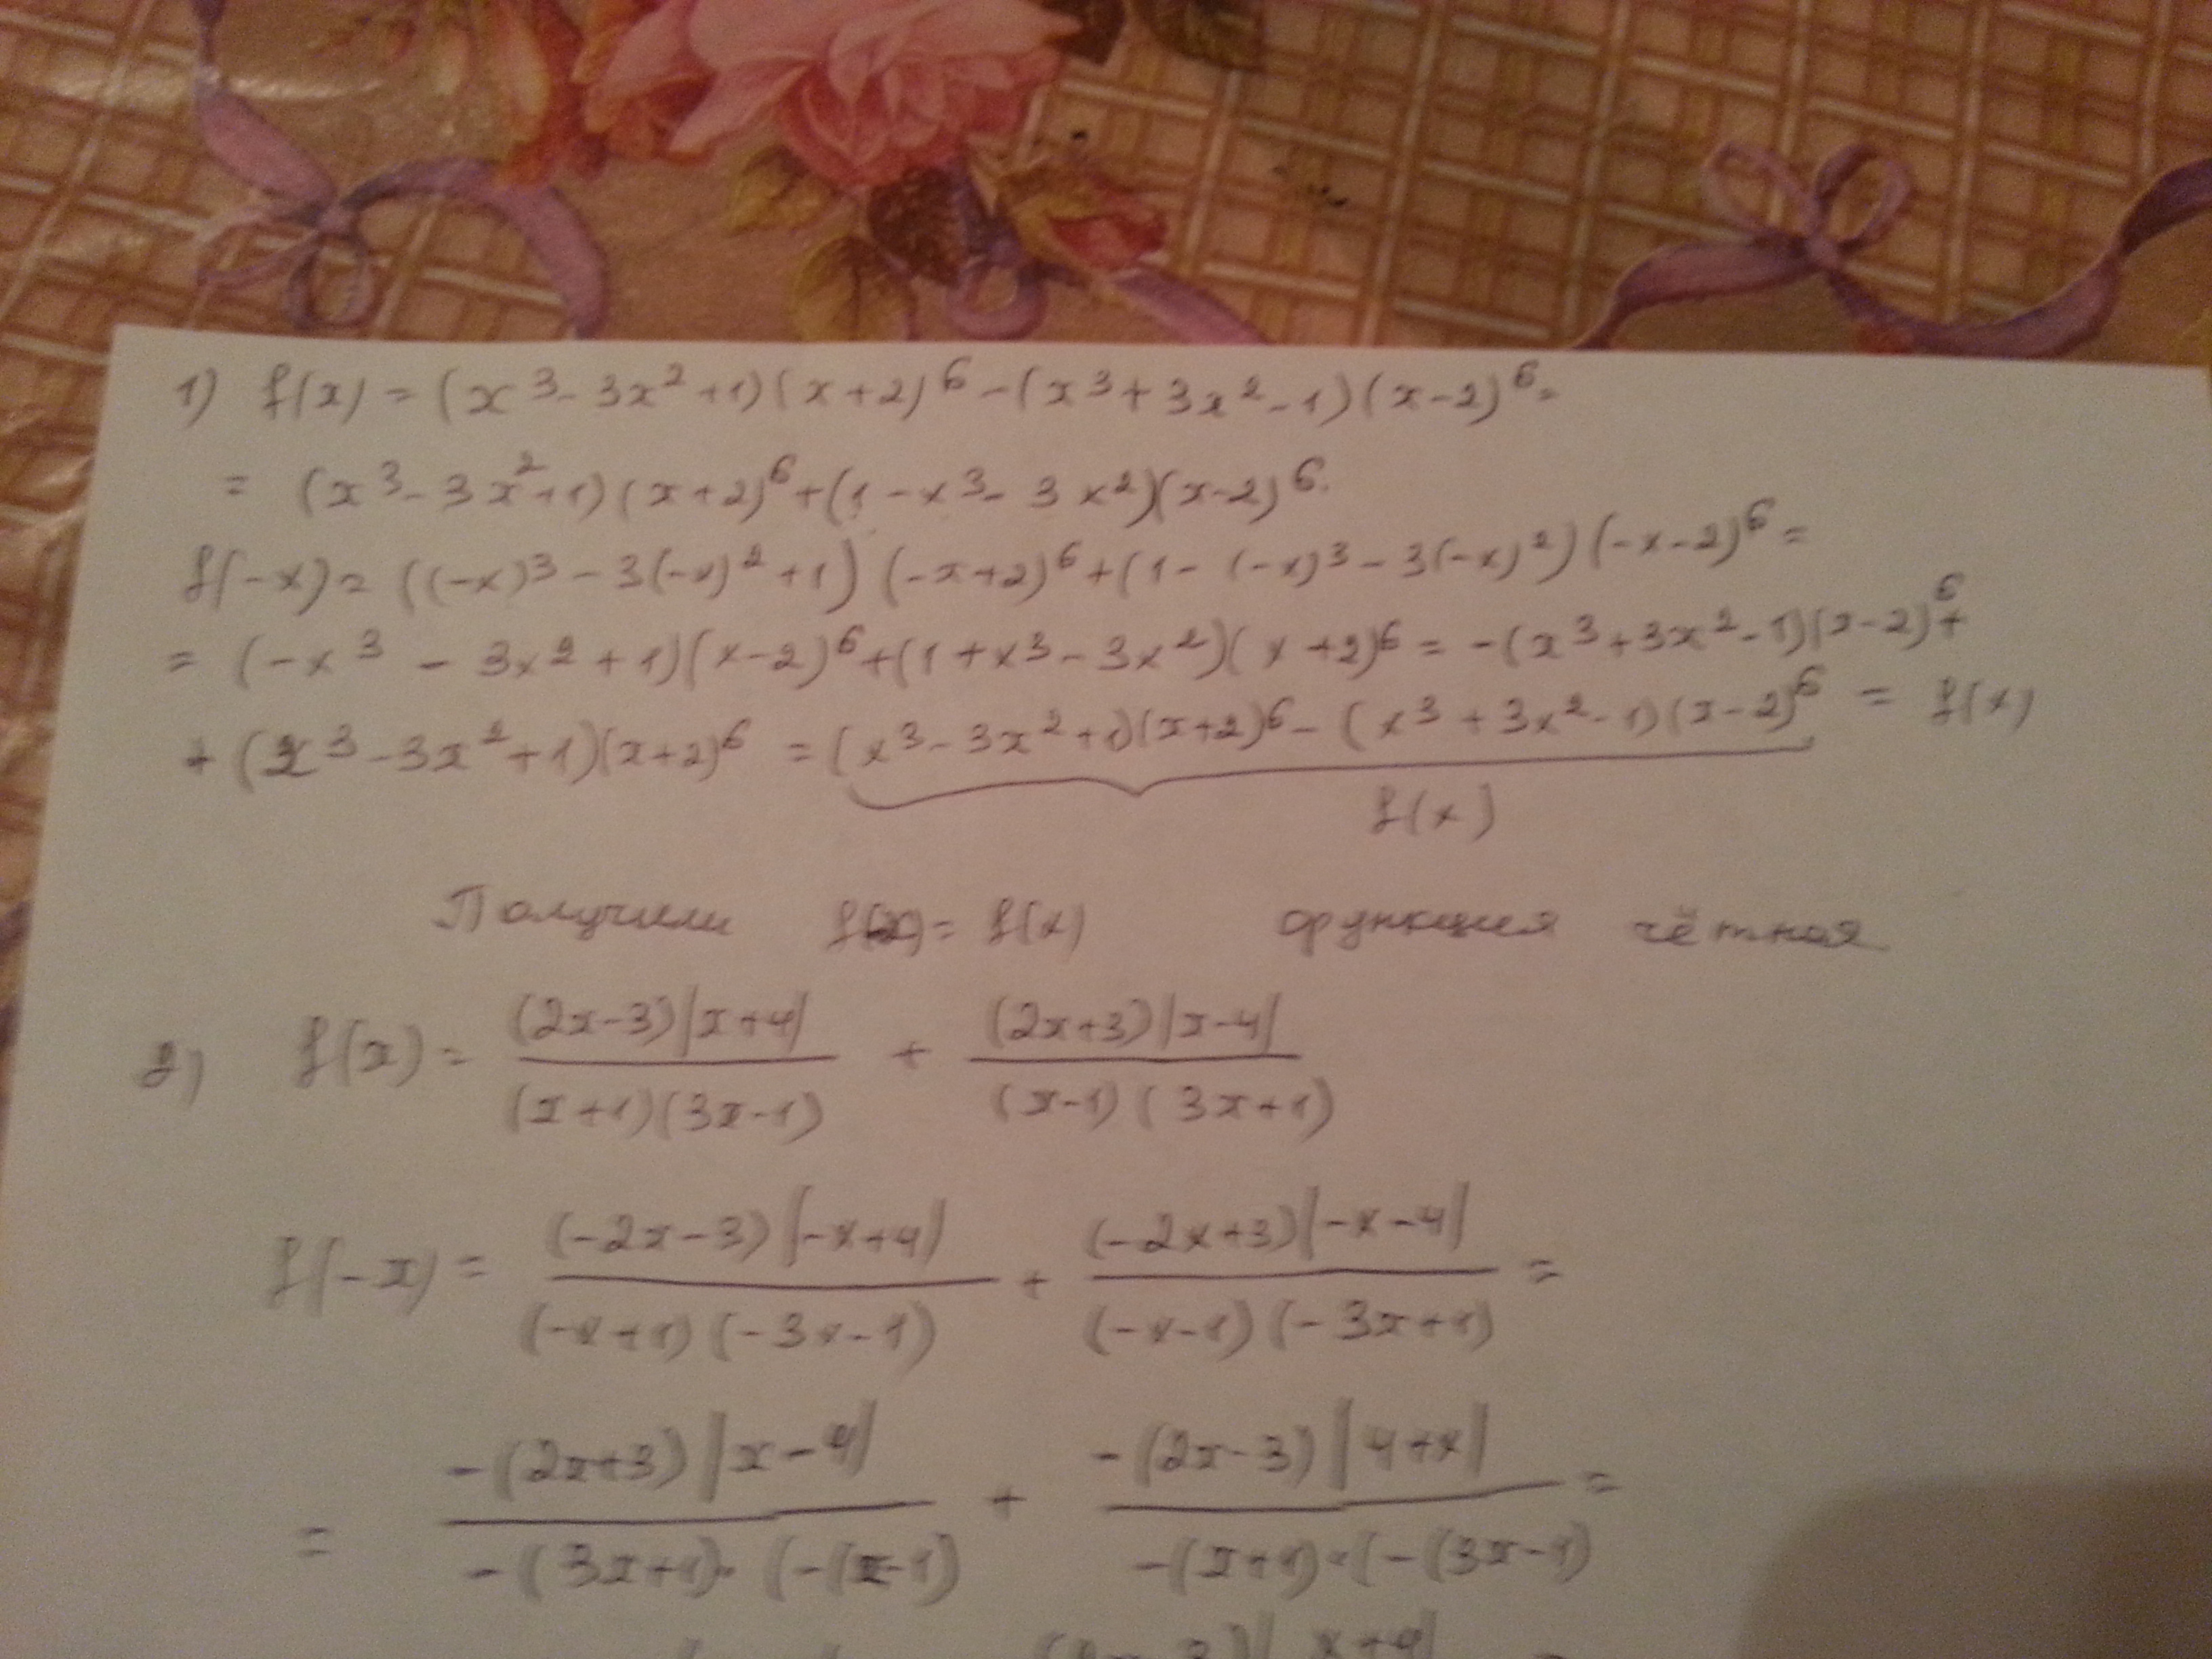 1) f(x) = (x³ - 3x² + 1)(x + 2)⁶ - (x³ + 3x² - 1)(x - 2)⁶ =
= (x³ - 3x² + 1)(x + 2)⁶ + (1 - x³ - 3x²)(x - 2)⁶.
f(-x) = ((-x)³ - 3(-x)² + 1)(-x + 2)⁶ + (1 - (-x)³ - 3(-x)²)(-x - 2)⁶ =
= (-x³ - 3x² + 1)(x - 2)⁶ + (1 + x³ - 3x²)(x + 2)⁶ = -(x³ + 3x² - 1)(x - 2)⁶ +
+ (x³ - 3x² + 1)(x + 2)⁶ = (x³ - 3x² + 1)(x + 2)⁶ - (x³ + 3x² - 1)(x - 2)⁶ = f(x)
f(x)
Получили f(-x) = f(x) функция чётная
2) f(x) = (2x - 3)|x + 4| / (x + 1)(3x - 1) + (2x + 3)|x - 4| / (x - 1)(3x + 1)
f(-x) = (-2x - 3)|-x + 4| / (-x + 1)(-3x - 1) + (-2x + 3)|-x - 4| / (-x - 1)(-3x + 1) =
= -(2x + 3)|x - 4| / -(3x + 1)·(-(x - 1) + -(2x - 3)|4 + x| / -(x + 1)·(-(3x - 1) =